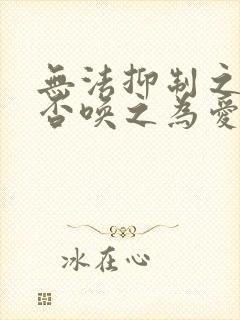 無法抑制之
否喚之為愛
冰在心